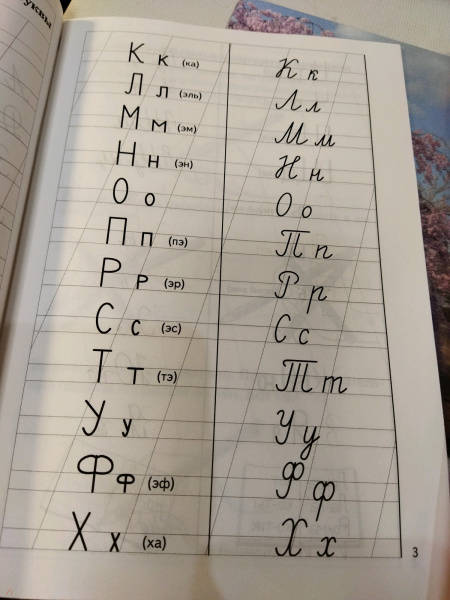 К к (ка) К к
Л л (эль) Л л
М м (эм) М м
Н н (эн) Н н
О о О о
П п (пэ) П п
Р р (эр) Р р
С с (эс) С с
Т т (тэ) Т т
У у У у
Ф ф (эф) Ф ф
Х х (ха) Х х
3